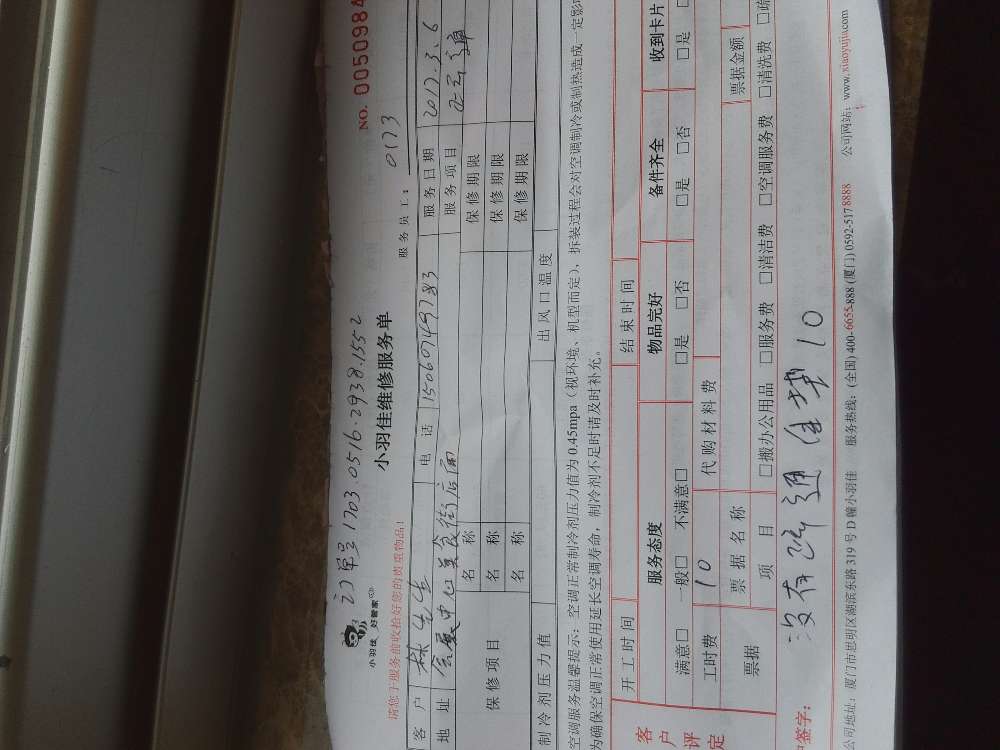 订单号 1703.0516.2938.1552
NO. 0050984
小羽佳 好管家
小羽佳维修服务单
服务员工： 0173
请您于服务前收拾好您的贵重物品！
客 户 林先生 电 话 15060749783 服务日期 2017.3.6
地 址 会展中心美食街店面 服务项目
保修项目
名 称 保修期限
名 称 保修期限
名 称 保修期限
制冷剂压力值 出风口温度
空调服务温馨提示：空调正常制冷剂压力值为 0.45mpa（视环境、机型而定），拆装过程会对空调制冷或制热造成一定影
为确保空调正常使用延长空调寿命，制冷剂不足时请及时补充。
开工时间 结束时间
客户评定
服务态度 物品完好 备件齐全 收到卡片
满意□ 一般□ 不满意□ □是 □否 □是 □否 □是
工时费 10 代购材料费
票据 票据名称 票据金额
项 目 □搬办公用品 □服务费 □清洁费 □空调服务费 □清洗费 □疏
没有疏通 住费 10
户签字：
公司地址：厦门市思明区湖滨东路 319 号 D 幢小羽佳 服务热线：(全国) 400-6655-888 (厦门) 0592-5178888 公司网站：www.xiaoyujia.com